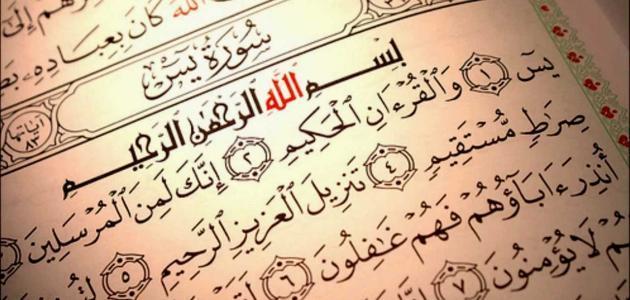 ٱللَّهَ كَانَ بِعِبَادِهِۦ
سُورَةُ يسٓ
آياتها ٨٣
بِسْمِ ٱللَّهِ ٱلرَّحْمَٰنِ ٱلرَّحِيمِ
يسٓ ١ وَٱلْقُرْءَانِ ٱلْحَكِيمِ ٢ إِنَّكَ لَمِنَ ٱلْمُرْسَلِينَ
صِرَٰطٍ مُّسْتَقِيمٍ ٤ تَنزِيلَ ٱلْعَزِيزِ ٱلرَّحِيمِ ٥
أُنذِرَ ءَابَآؤُهُمْ فَهُمْ غَٰفِلُونَ ٦ لَقَدْ
لَا يُؤْمِنُونَ ٧